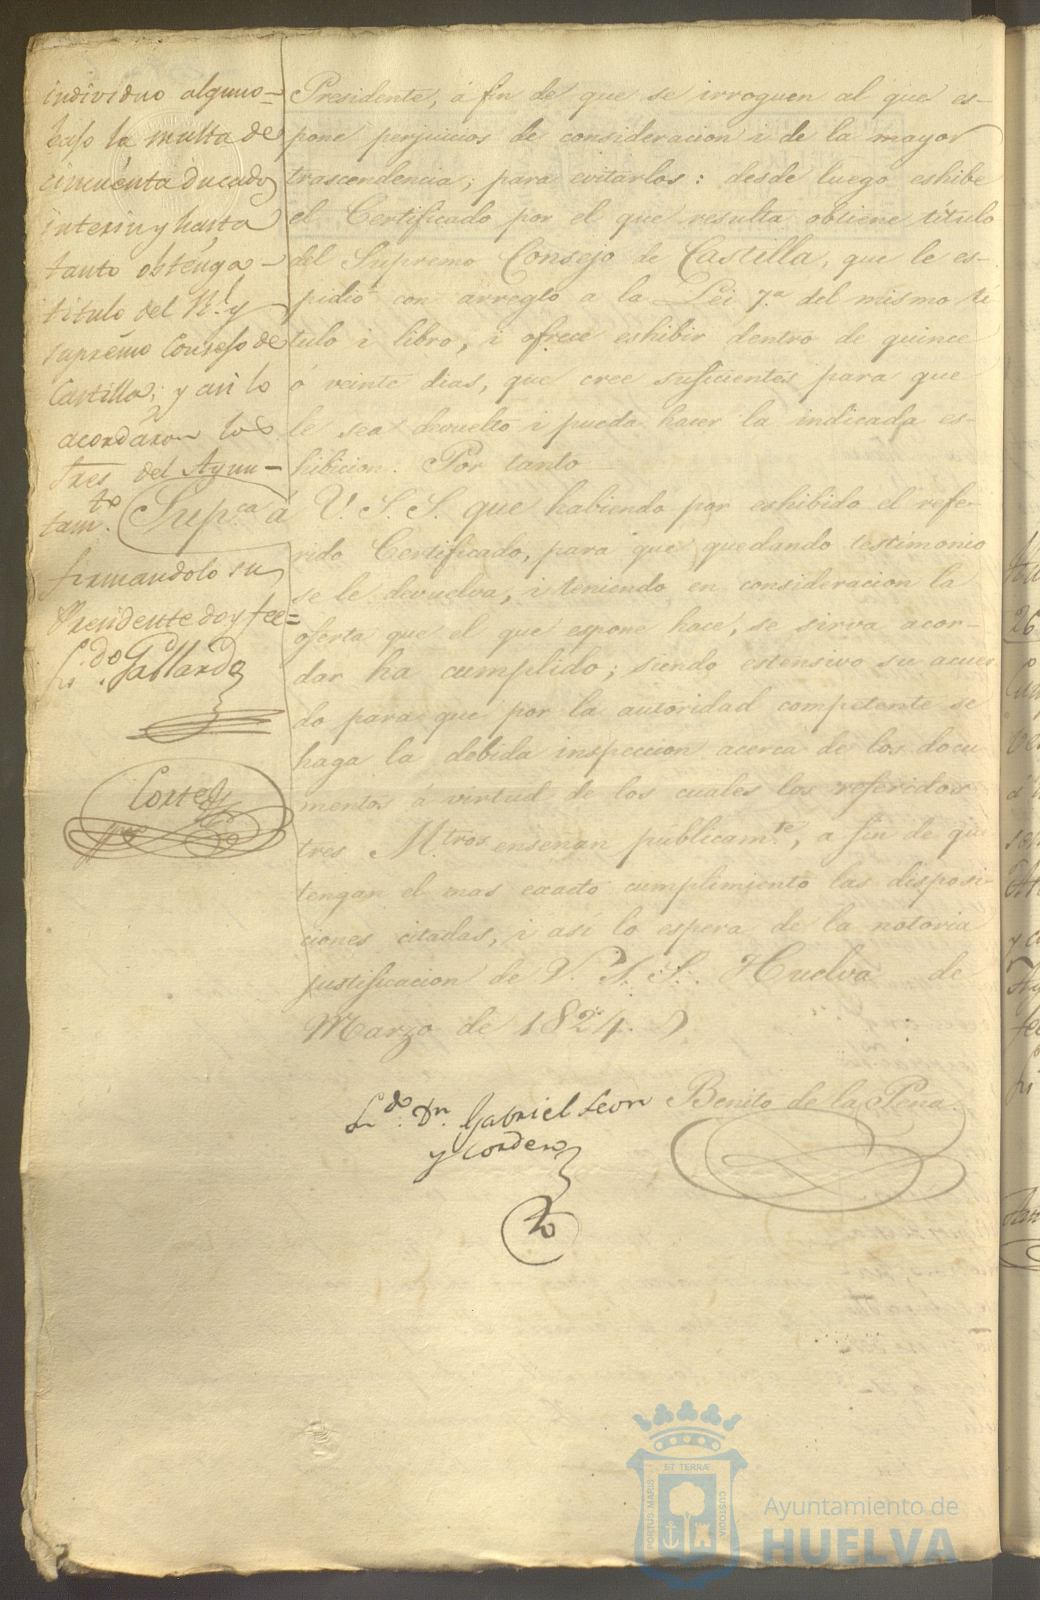 individuo alguno=
bajo la multa de
cincuenta ducados
interin y hasta
tanto obtenga
titulo del Rl. y
supremo Consejo de
Castilla; y asi lo
acordaron los
Sres del Ayun-
tamto.
firmandolo su
Presidente doy fee=
Ldo. Gallardo
Cortes
Presidente, á fin de que se irroguen al que es-
pone perjuicios de consideracion i de la mayor
trascendencia; para evitarlos: desde luego eshibe
el Certificado por el que resulta obtiene título
del Supremo Consejo de Castilla, que le es-
pidió con arreglo a la Lei 7.a del mismo tí
tulo i libro, i ofrece eshibir dentro de quince
ó veinte dias, que cree suficientes para que
le sea devuelto i pueda hacer la indicada es-
hibicion. Por tanto
Supca á V. S. S. que habiendo por exhibido el refe-
rido Certificado, para que quedando testimonio
se le devuelva, i teniendo en consideracion la
oferta que el que espone hace, se sirva acor-
dar ha cumplido; siendo estensivo su acuer
do para que por la autoridad competente se
haga la debida inspeccion acerca de los docu
mentos á virtud de los cuales los referidos
tres M.tros enseñan publicamte, a fin de que
tengan el mas exacto cumplimiento las disposi-
ciones citadas, i así lo espera de la notoria
justificacion de V. S. S. Huelva de
Marzo de 1824.
Ldo. Dn. Gabriel Leon
y Cordero
Benito de la Peña
PORTUS MARIS
ET TERRÆ
CUSTODIA
Ayuntamiento de
HUELVA